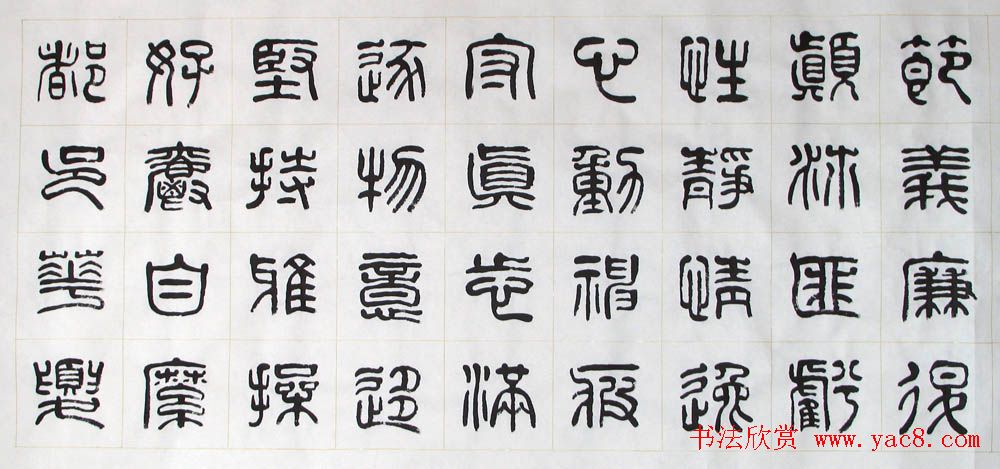 節義廉退
顛沛匪虧
性靜情逸
心動神疲
守眞志滿
逐物意迻
堅持雅操
好爵自縻
都邑華夏
书法欣赏 www.yac8.com